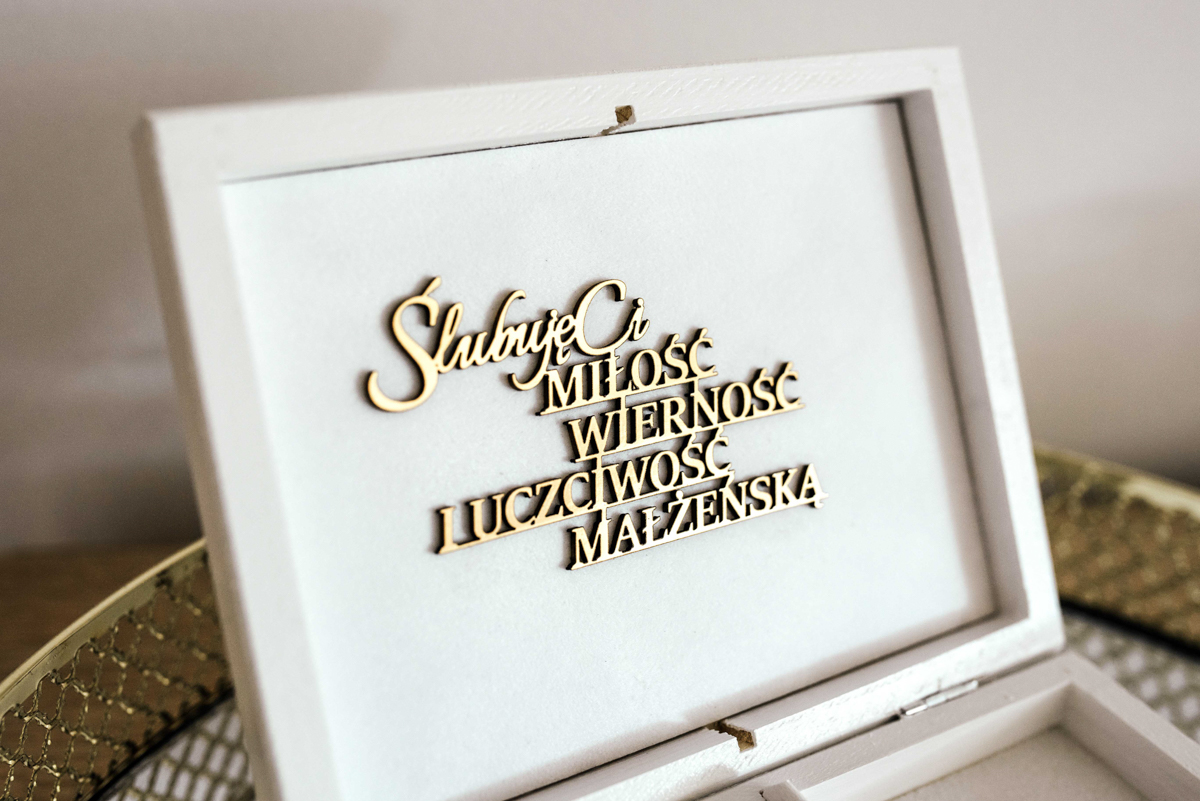 Ślubuję Ci
MIŁOŚĆ
WIERNOŚĆ
I UCZCIWOŚĆ
MAŁŻEŃSKĄ